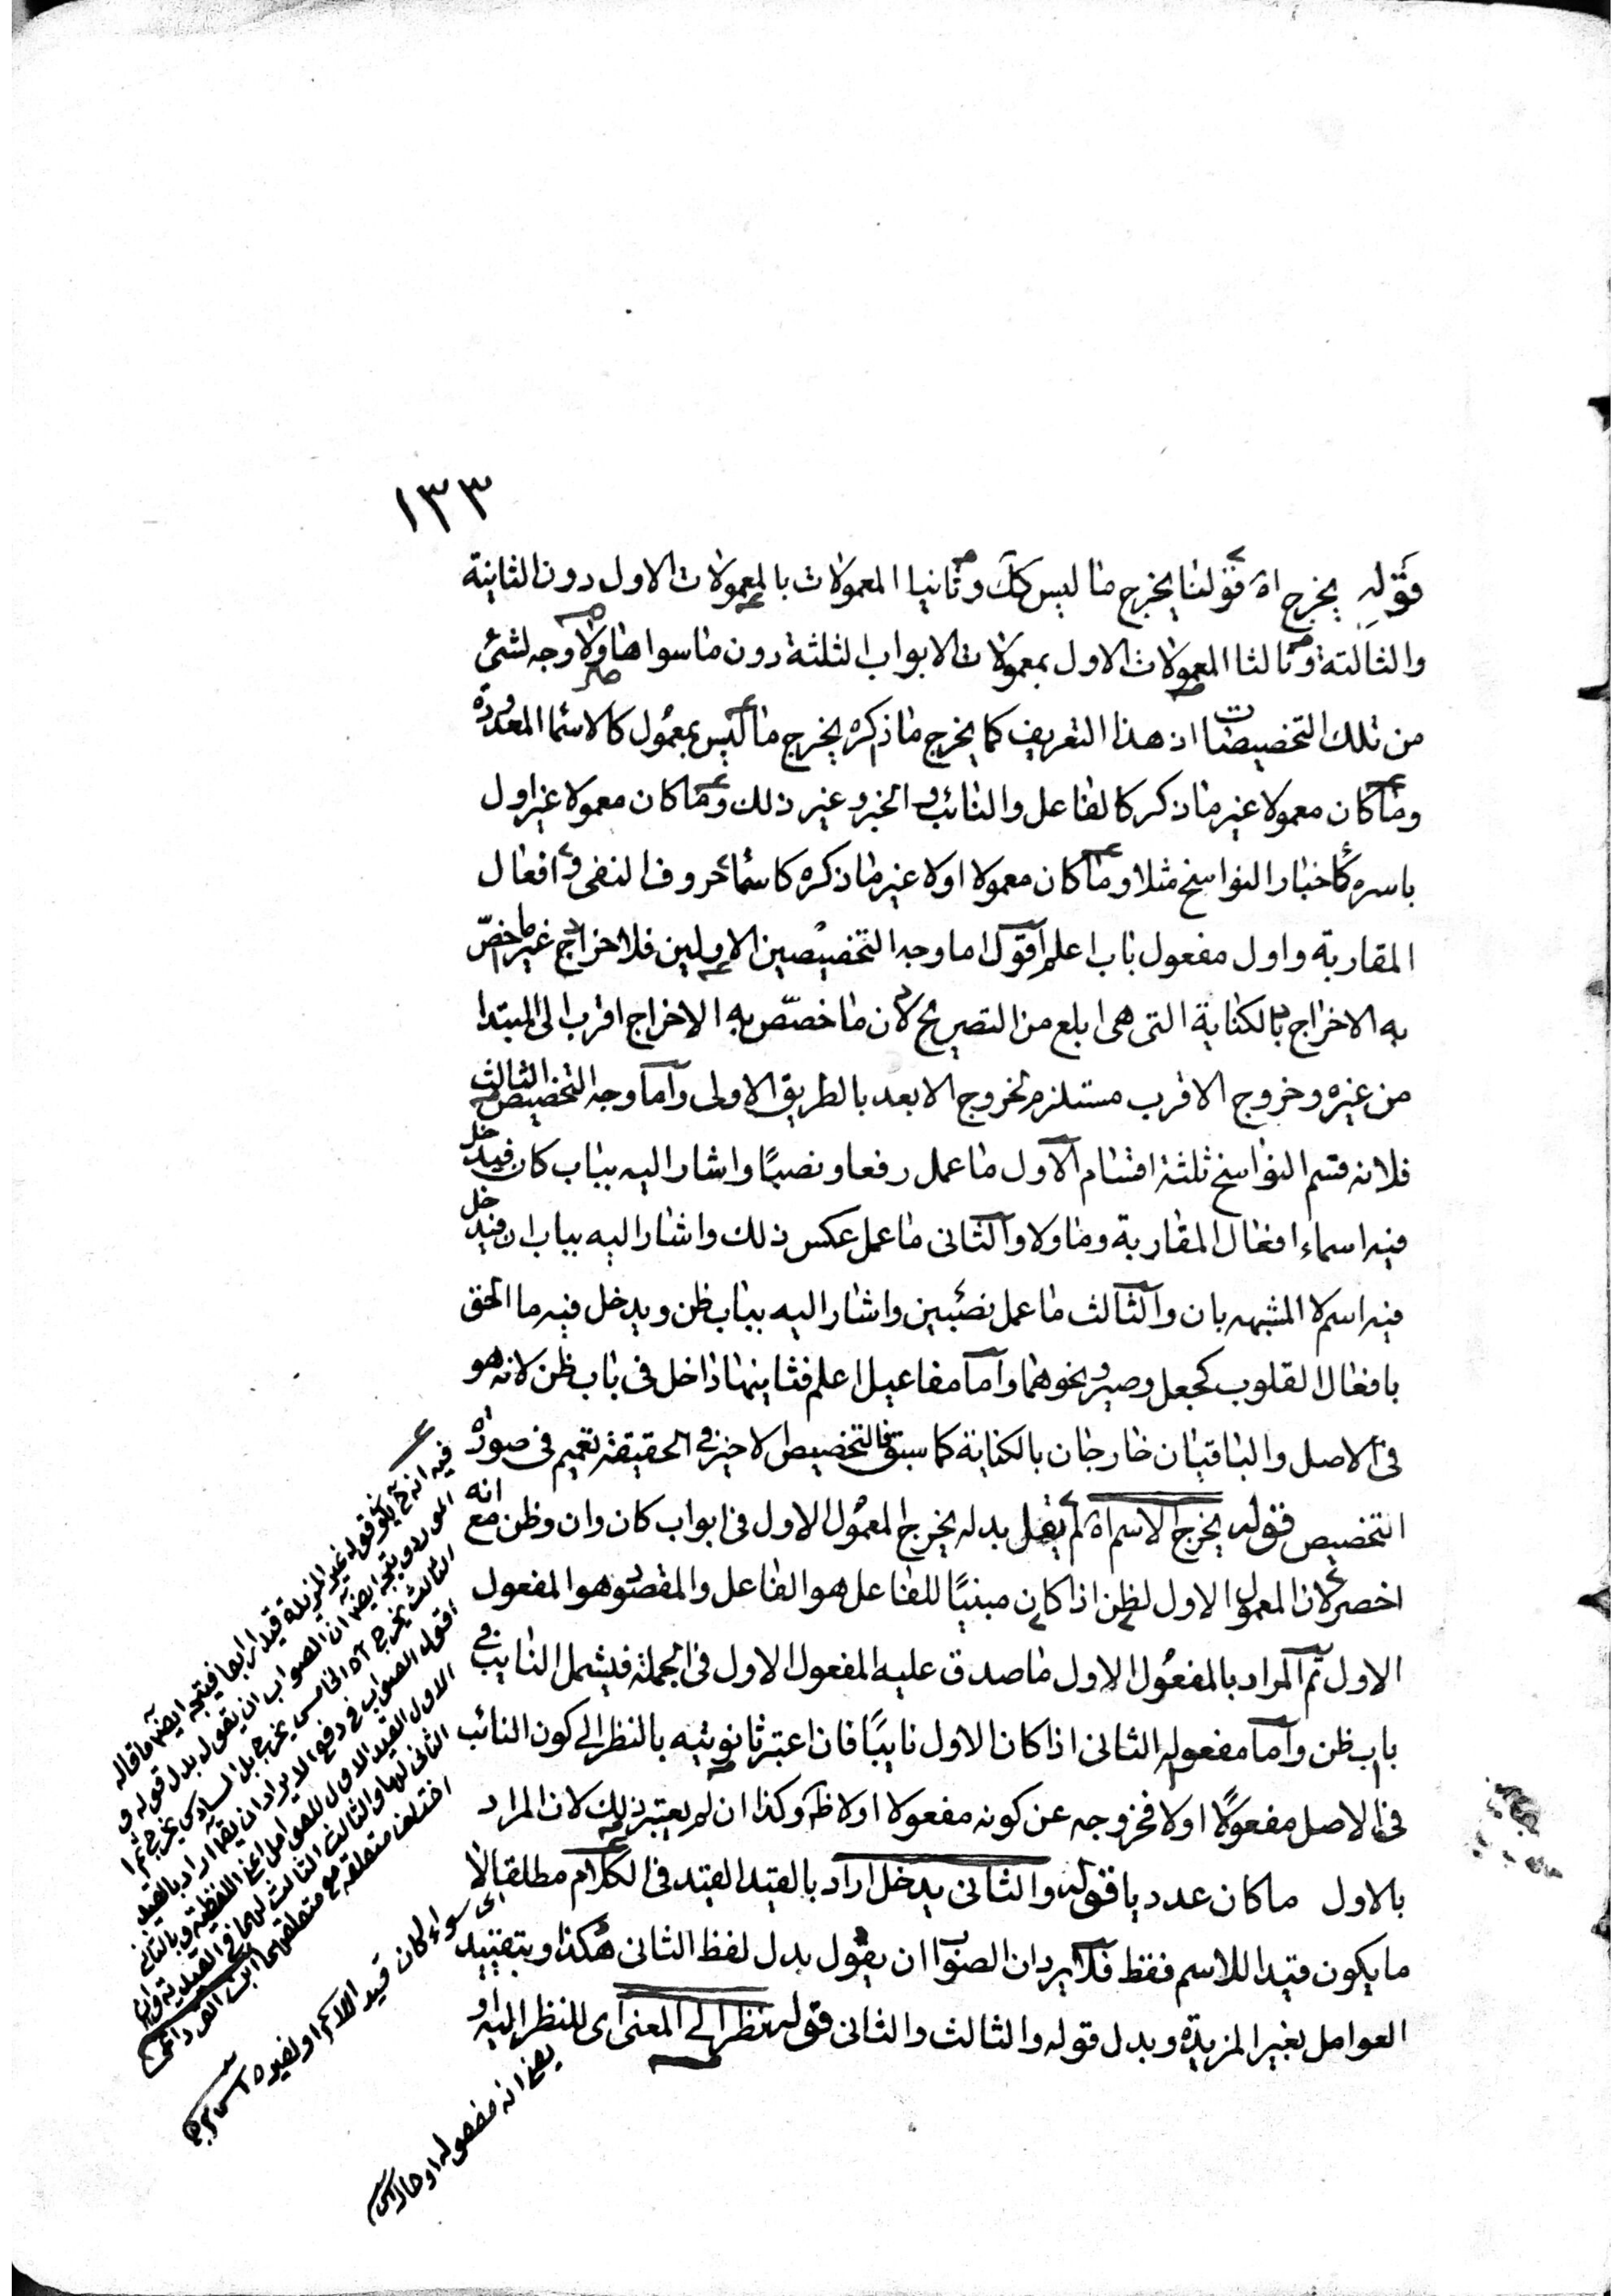 ١٣٣
قوله يخرج اه فقولنا يخرج ما ليس كك وثانيا المعمولات بالمعمولات الاول دون الثانية
والثالثة وثالثا المعمولات الاول بمعمولات الابواب الثلثة دون ما سواها ولا وجه لشئ
من تلك التخصيصات اذ هذا التعريف كما يخرج ما ذكره يخرج ما ليس بمعمول كالاسماء المعدودة
وما كان معمولا غير ما ذكر كالفاعل والنائب والخبر وغير ذلك وما كان معمولا غير اول
باسره كاخبار النواسخ مثلا وما كان معمولا اولا غير ما ذكره كاسماء حروف النفى وافعال
المقاربة واول مفعول باب اعلم اقول اما وجه التخصيصين الاولين فلاخراج غير ما خصّ
به الاخراج بالكناية التى هى ابلغ من التصريح لان ما خصّص به الاخراج اقرب الى المبتدا
من غيره وخروج الاقرب مستلزم لخروج الابعد بالطريق الاولى واما وجه التخصيص الثالث
فلانه قسم النواسخ ثلثة اقسام الاول ما عمل رفعا ونصبًا واشار اليه بباب كان فيدخل
فيه اسماء افعال المقاربة وما ولا والثانى ما عمل عكس ذلك واشار اليه بباب ان فيدخل
فيه اسم لا المشبهه بان والثالث ما عمل نصبين واشار اليه بباب ظن ويدخل فيه ما الحق
بافعال القلوب كجعل وصير ونحوهما واما مفاعيل اعلم فثانيها داخل فى باب ظن لانه هو
فى الاصل والباقيان خارجان بالكناية كما سبق فالتخصيص الاخير فى الحقيقة تعميم فى صورة
التخصيص قوله يخرج الاسم اه لم يقل بدله يخرج المعمول الاول فى ابواب كان وان وظن مع انه
اخصر لان المعمول الاول لظن اذا كان مبنيًا للفاعل هو الفاعل والمقصود هو المفعول
الاول ثم المراد بالمفعول الاول ما صدق عليه المفعول الاول فى الجملة فيشمل النايب فى
باب ظن واما مفعوله الثانى اذا كان الاول نايبًا فان اعتبر ثانويته بالنظر الى كون النائب
فى الاصل مفعولًا اولا فخروجه عن كونه مفعولا اولا ظ وكذا ان لم يعتبر ذلك لان المراد
بالاول ما كان عدديا قوله والثانى يدخل اراد بالقيد القيد فى الكلام مطلقا لا
ما يكون قيدا للاسم فقط فلا يرد ان الصواب ان يقول بدل لفظ الثانى هكذا وبتقييد
العوامل بغير المزيدة وبدل قوله والثالث والثانى قوله نظرا الى المعنى اى للنظر اليه او
فيه انه ح يكون قوله غير المزيدة قيدا رابعا فيتجه ايضا ما قاله
المورد ويتجه ايضا ان الصواب ان يقول بدل قوله و
الثالث يخرج اه الخامس يخرج بل السادس يخرج
اقول الصواب فى دفع الايراد ان يقال اراد بالقيد
الاول القيد الاول للعوامل اعنى اللفظية وبالثانى
الثانى لها وبالثالث الثالث لهما فى القيدية وان
اختلف متعلقه مع متعلقهما ابن القرداغى
اى سواء كان قيد الاسم او لغيره
يعنى انه مفعول له او حال